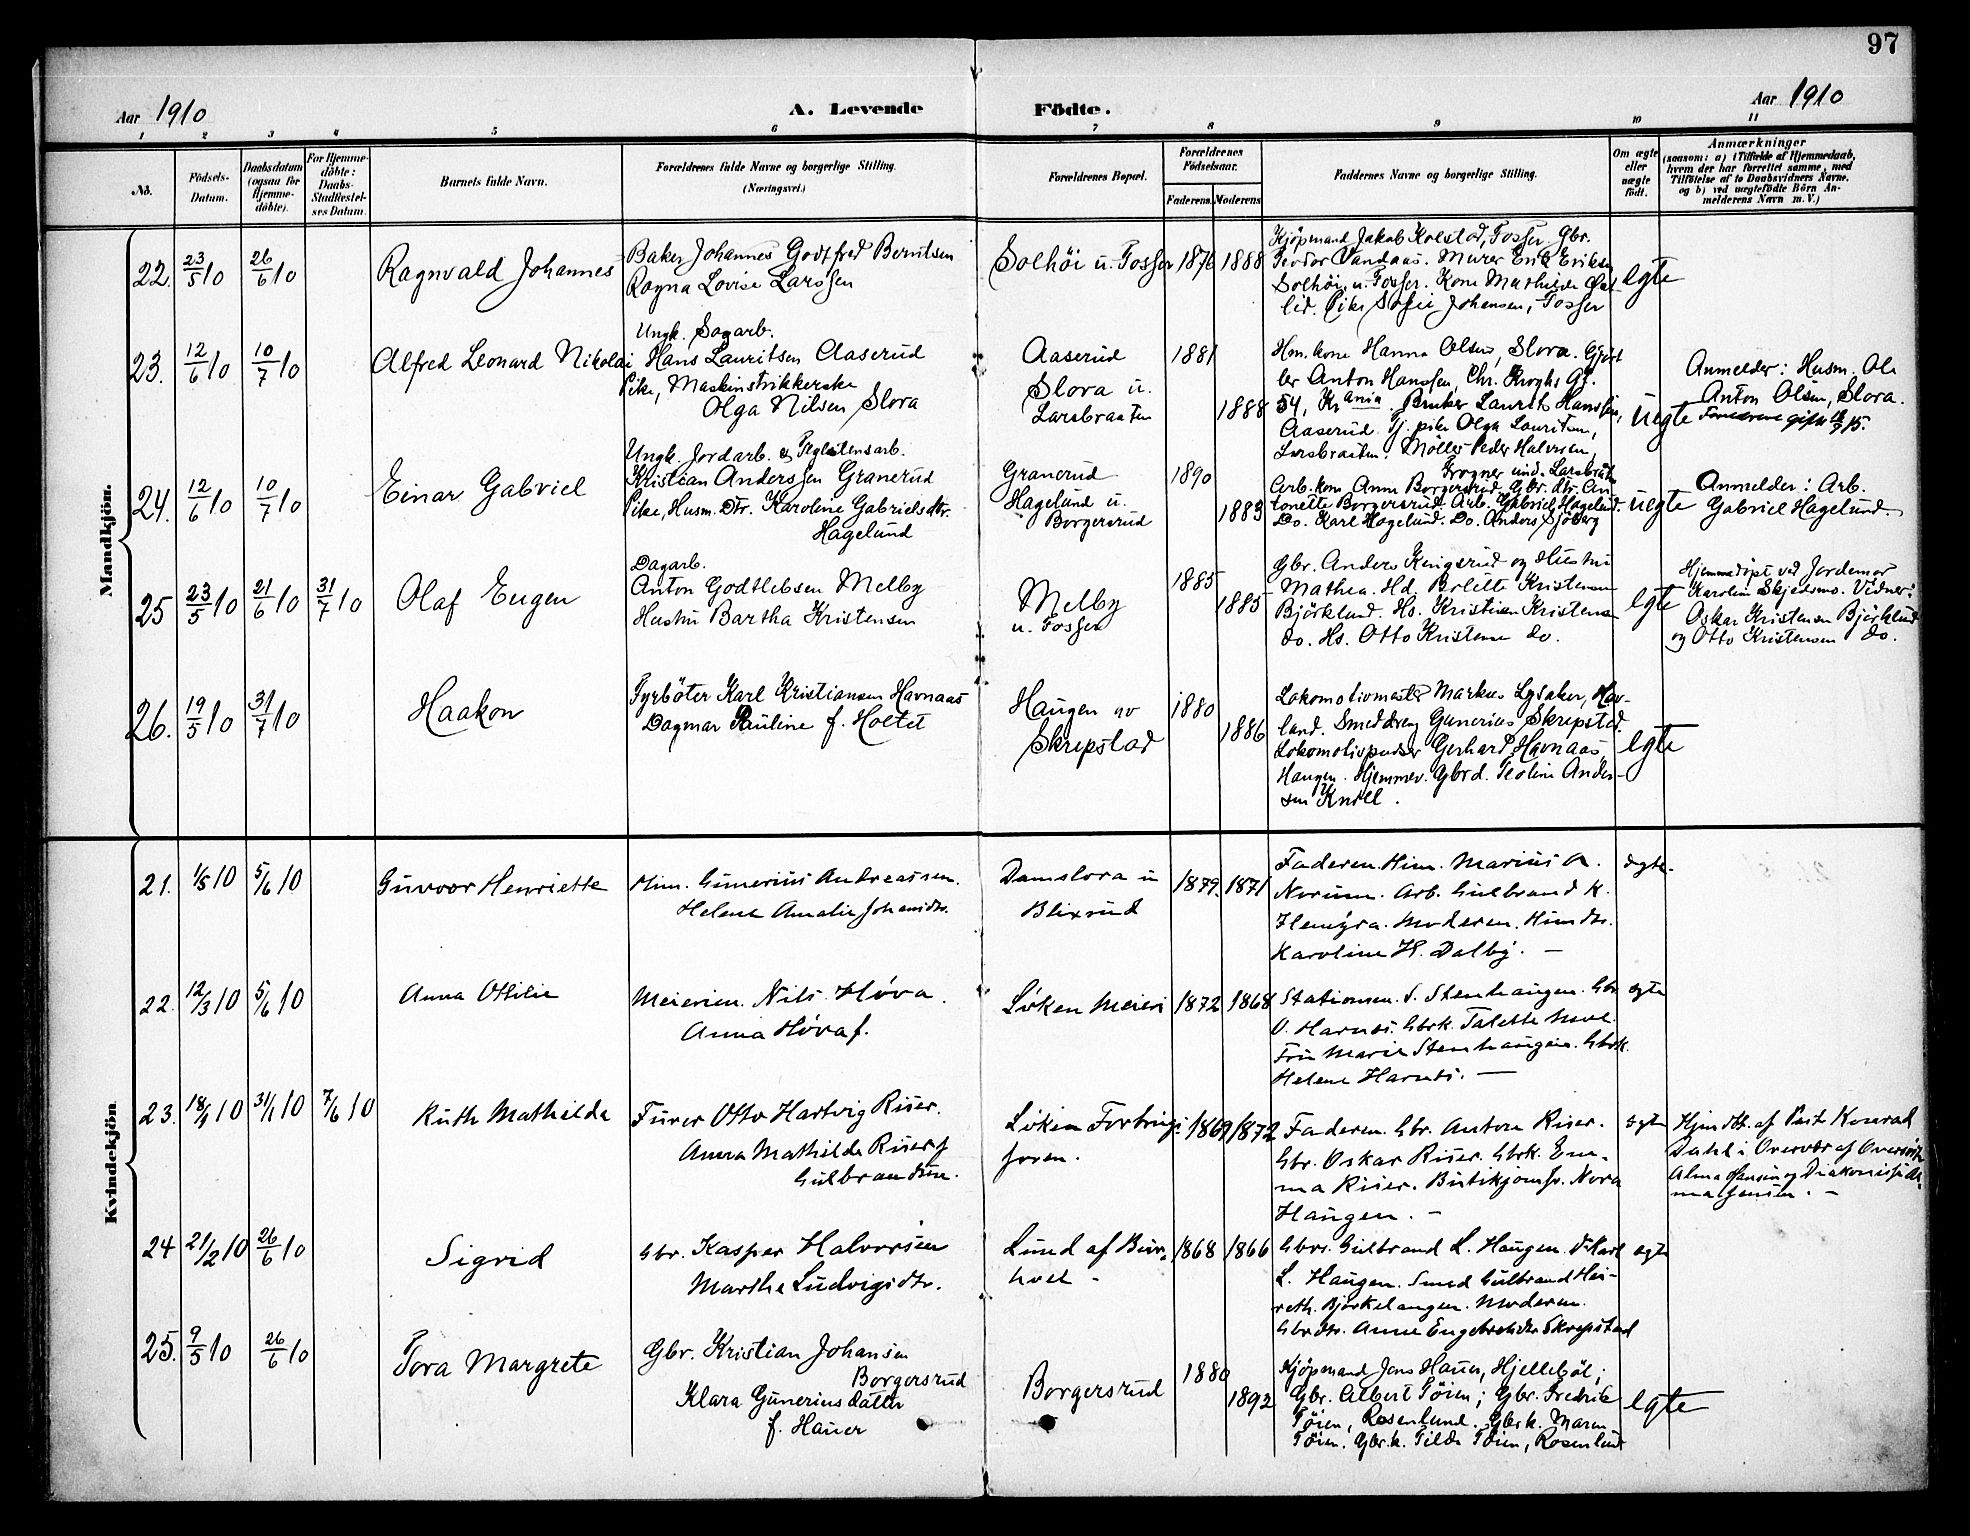 97
Aar 1910
A. Levende Födte.
Aar 1910
1 2 3 4 5 6 7 8 9 10 11
No.
Födsels-Datum.
Daabsdatum (ogsaa for Hjemme-döbte).
For Hjemme-döbte: Daabs-Stadfæstel-ses Datum.
Barnets fulde Navn.
Forældrenes fulde Navne og borgerlige Stilling. (Næringsvei.)
Forældrenes Bopæl.
Forældrenes Födselsaar.
Faderens. Moderens.
Faddernes Navne og borgerlige Stilling.
Om ægte eller uægte födt.
Anmærkninger
(saasom: a) i Tilfælde af Hjemmedaab,
hvem der har forrettet samme, med
Tilföielse af to Daabsvidners Navne.
og b) ved uægtefödte Börn An-
melderens Navn m. V.)
Mandkjön.
22. 23/5 10 26/6 10
Ragnvald Johannes
Baker Johannes Godtfred Berntsen
Ragna Lovise Larssen
Solhöi u. Fosser
1876 1888
Kjöpmand Jakob Kolstad, Fosser Gbr.
Teodor Vandaas. Murer Erik Eriksen
Solhöi, u. Fosser. Kone Mathilde
lid. Pike Sofie Johansen, Fosser
egte
23. 12/6 10 10/7 10
Alfred Leonard Nikolai
Ungk. Sagarb.
Hans Lauritsen Aaserud
Pike, Maskinstrikkerske
Olga Nilsen Slora
Aaserud
Slora u.
Larsbraaten
1881
1888
Hm. kone Hanna Olsen, Slora.
ler Anton Hanssen, Chr. Kroghs Gt.
54, Kr.ania. Bruker Laurits Hanssen,
Aaserud. Tj. pike Olga Lauritsen,
Larsbraaten. Möller Peder Halvorsen,
Frogner und. Larsbråten
uegte
Anmelder: Husm. Ole
Anton Olsen, Slora.
Forældrene gift
24. 12/6 10 10/7 10
Einar Gabriel
Ungk. Jordarb. & Teglstensarb.
Kristian Anderssen Granerud
Pike, Husm. Dtr. Karoline Gabrielsdtr.
Hagelund
Granerud
Hagelund u.
Borgersrud
1890
1883
Arb. kone Anne Borgersrud. Gbr. dtr. An-
tonette Borgersrud. Arb. Gabriel Hagelund.
Do. Karl Hagelund. Do. Anders Sjöberg
uegte
Anmelder: Arb.
Gabriel Hagelund.
25 23/5 10 21/6 10 31/7 10
Olaf Eugen
Dagarb.
Anton Godtlebsen Melby
Hustru Bartha Kristensen
Melby
u. Fosser
1885
1885
Gbr. Anders Kingsrud og Hustru
Mathea. Hd. Bolette Kristensen
Björklund. Hs. Kristian Kristensen
do. Hs. Otto Kristensen do.
egte
Hjemmedöpt ved Jordemor
Karoline Skjedsmo. Vidner:
Oskar Kristensen Björklund
og Otto Kristensen do.
26. 19/5 10 31/7 10
Haakon
Fyrböter Karl Kristiansen Havnaas
Dagmar Pauline f. Holtet
Haugen av
Skrepstad
1880
1886
Lokomotivmester Markus Lysaker, Hav-
land. Smeddreng Gunerius Skrepstad.
Lokomotivpudser Gerhard Havnaas
Haugen. Hjemmev. Gbrd. Teoline Ander-
sen Knoll.
egte
Kvindekjön
21. 1/5 10 5/6 10
Guvoor Henriette
Him. Gunerius Andreassen.
Helene Amalie Johansdtr.
Damslora u
Blixrud
1879. 1871
Faderen. Him. Marius A.
Norum. Arb. Gulbrand K.
Hemýra. Moderen. Himdtr.
Karoline H. Dalby. —
egte.
22. 12/3 10 5/6 10
Anna Ottilie
Meierien. Nils Höva.
Anna Höva f.
Löken Meieri
1872 1868
Stationsm. S. Stenhaugen. Gbr
O. Harnes. Gbrk. Talette Moe.
Fru Marie Stenhaugen. Gbrk.
Helene Harnes. —
egte
23. 18/1 10 31/1 10 7/6 10
Ruth Mathilde
Furer Otto Hartvig Riser.
Anna Mathilda Riser f
Gulbrandsen.
Löken Forbrugs-
foren.
1869 1872
Faderen. Gbr. Anton Riser.
Gbr. Oskar Riser. Gbrk. Em-
ma Riser. Butikjomfr. Nora
Haugen. —
egte
Hjmdbt. af Past. Konrad
Dahl i Overvær af
Alma Hansen og Diakonisse Al-
ma Jensen. —
24 21/2 10 26/6 10
Sigrid
Gbr. Kasper Halvorsen
Marthe Ludvigsdtr.
Lund af Bur-
hoel -
1868 1866
Gbrs. Gulbrand L. Haugen. Karl
L. Haugen. Smed Gulbrand Hen-
reth. Bjørkelangen. Moderen.
Gbrdtr. Anne Engebretsdtr Skrepstad
egte
25. 9/5 10 26/6 10
Tora Margrete
Gbr. Kristian Johansen
Borgersrud
Klara Gunerius datter
f. Hauer
Borgersrud
1880
1892
Kjöpmand Jens Hauer, Hjelleböl;
Gbr. Albert Töien; Gbr. Fredrik
Töien, Rosenlund. Gbrk. Maren
Töien. Gbr.k. Tilda Töien, Rosenlund
egte